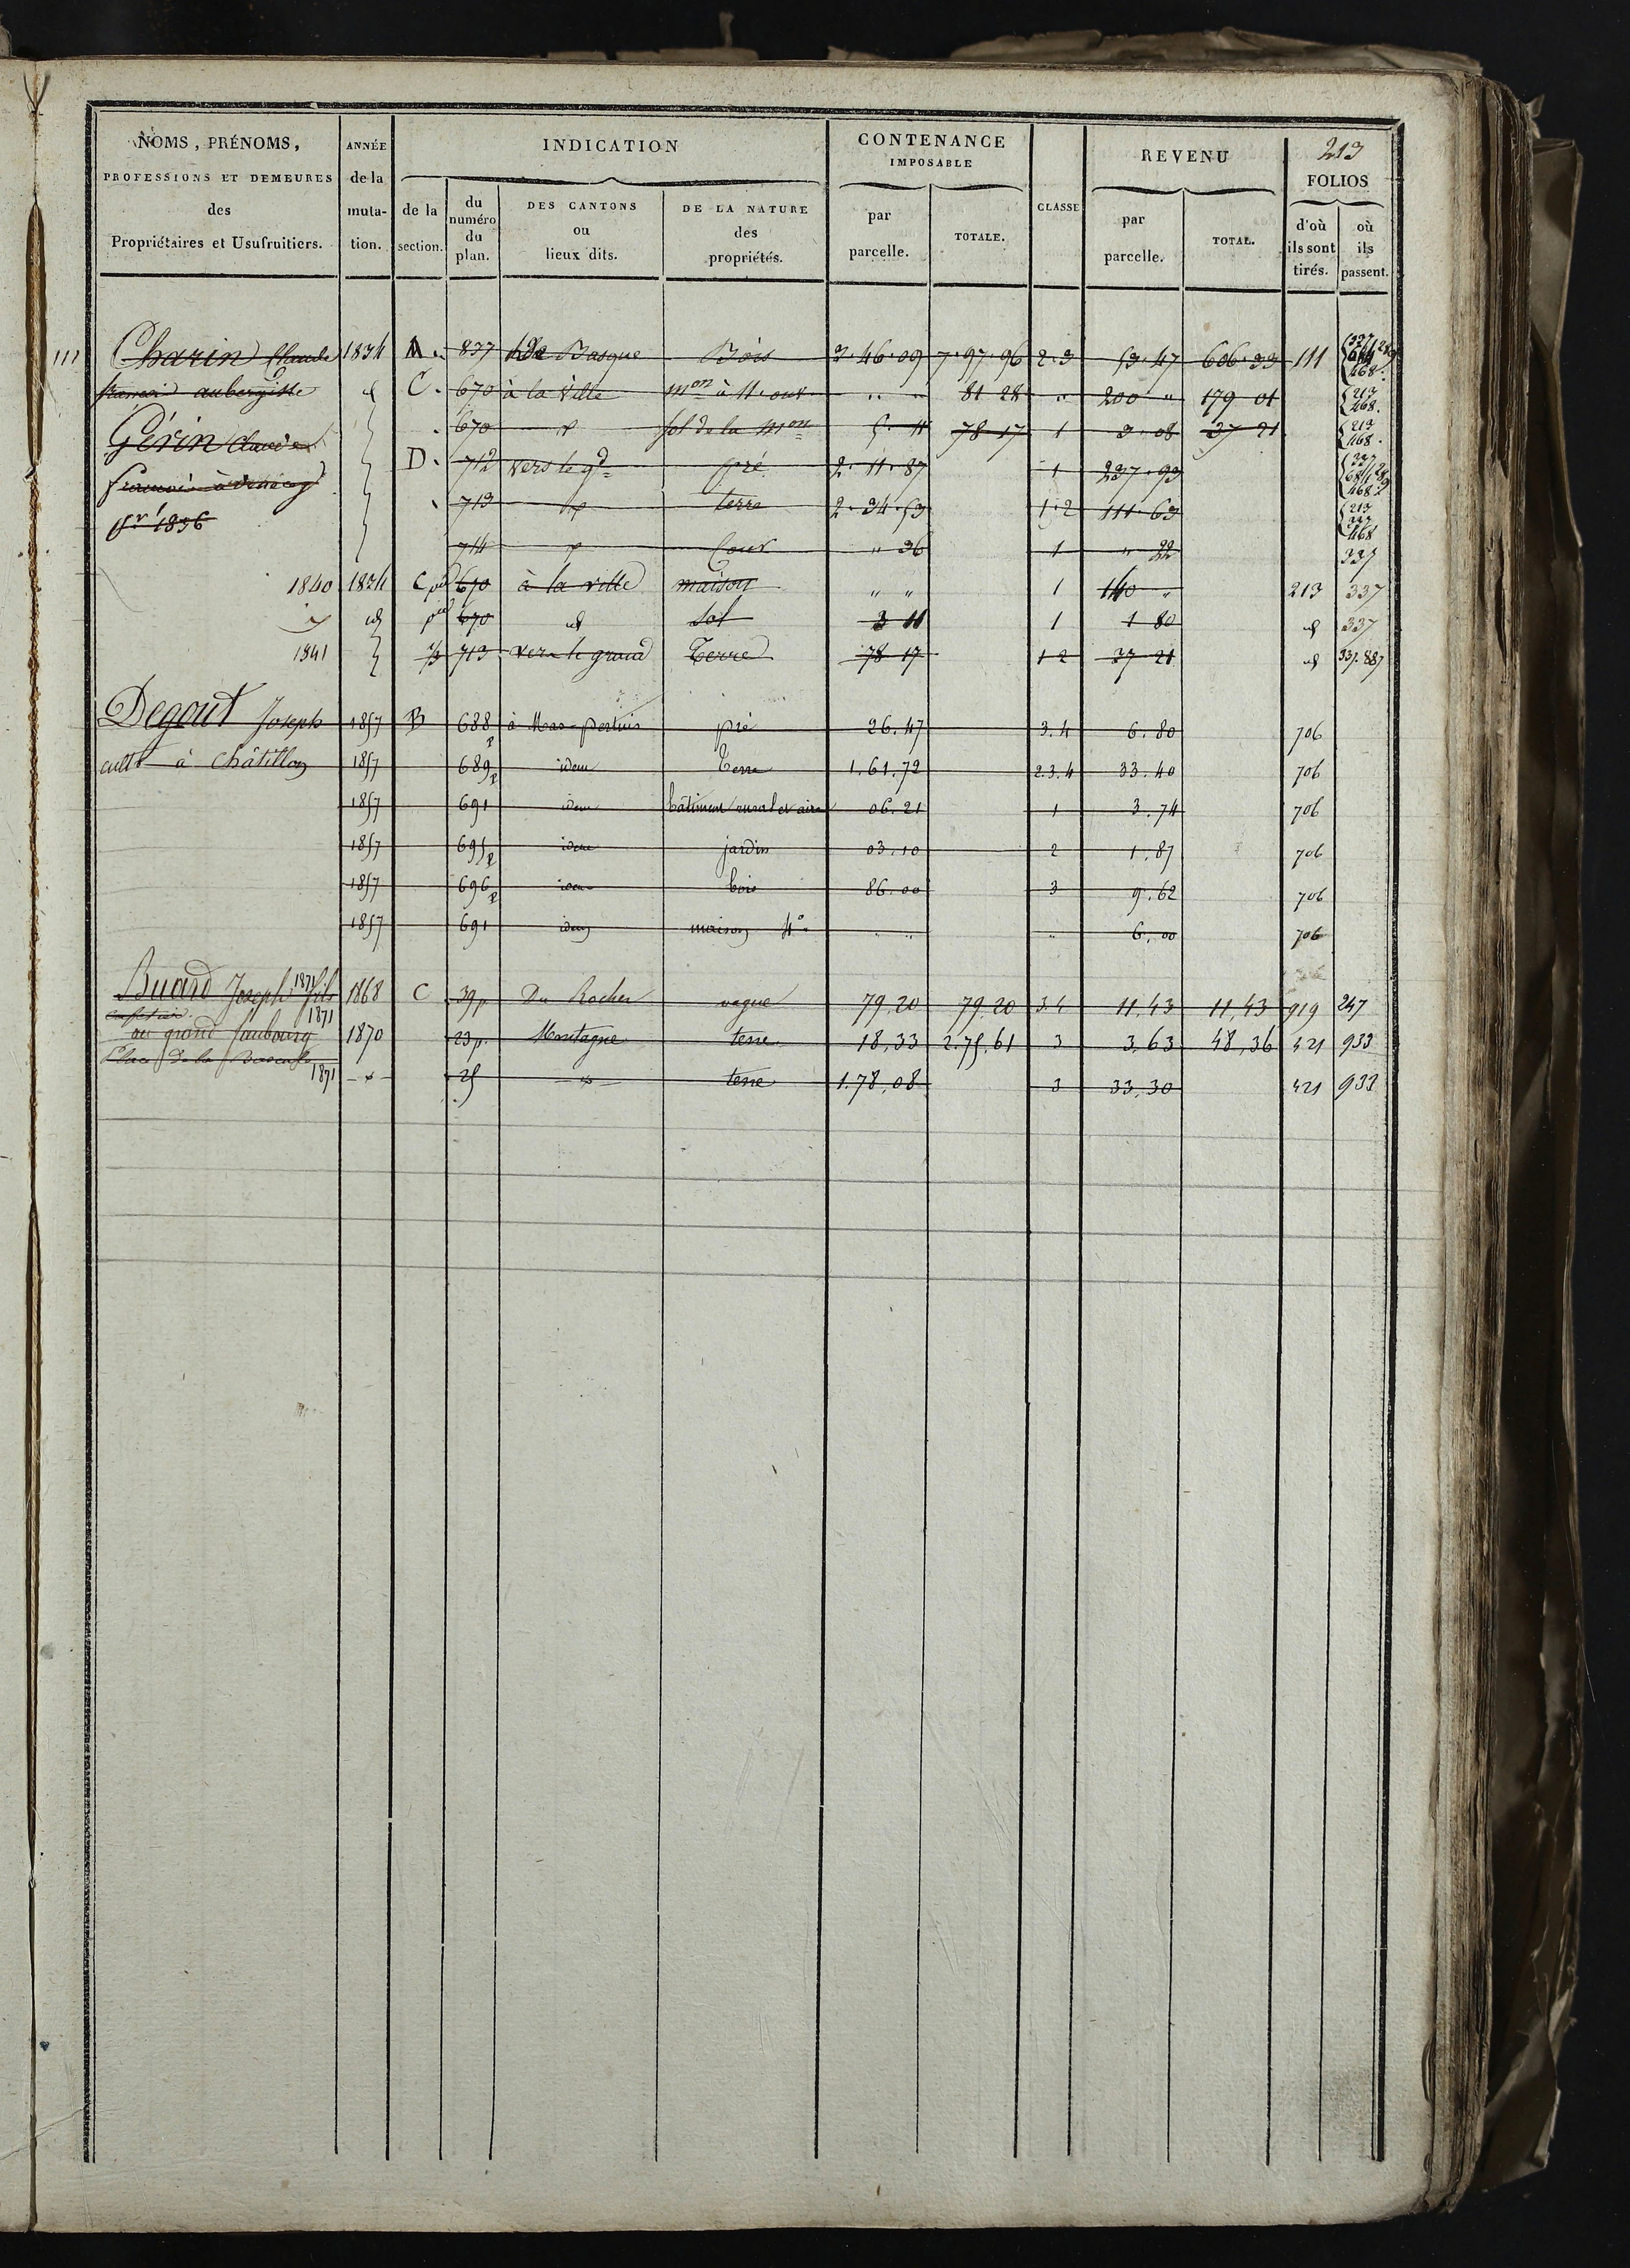 213
NOMS, PRÉNOMS, PROFESSIONS ET DEMEURES des Propriétaires et Usufruitiers.
ANNÉE de la muta-tion.
INDICATION
de la section.
du numéro du plan.
DES CANTONS ou lieux dits.
DE LA NATURE des propriétés.
CONTENANCE IMPOSABLE
par parcelle.
TOTALE.
CLASSE
REVENU
par parcelle.
TOTAL.
FOLIOS
d'où ils sont tirés.
où ils passent.
111 Charin Claude 1834 A. 837 Basque Bois 3.46.09 7.97.96 2.3 53.47 606.33 111 468.
françois aubergiste d C. 670 à la ville mon à 11 ouv " " 81 28 " 200 " 179 01 213 468.
Gérin Claude . 670 d sol de la mon 5.11 78 17 1 3.08 37 21 213 468.
françois D. 712 vers le gd pré 2.11.87 1 237.93 337 468
pr 1836 713 d terre 2.34.53 1.2 111.63 213 337 468
714 d Cour " 36 1 " 22 337
1840 1834 C pel 670 à la ville maison " " 1 140 " 213 337
d pel 670 d Sol 3 11 1 1 80 d 337
1841 1/3 713 vers le grand Terre 78 17 1 2 37 21 d 337.887
Degout Joseph 1857 B 688 p à Mas-pertuis pré 26.47 3.4 6.80 706
cultr à Châtillon 1857 689 p idem Terre 1.61.72 2.3.4 33.40 706
1857 691 idem bâtiment rural et aire 06.21 1 3.74 706
1857 695 p idem jardin 03.10 2 1.87 706
1857 696 p idem bois 86.00 3 9.62 706
1857 691 idem maison 4e " " " 6.00 706
Buard Joseph fils 1871 1868 C 39 p. Du Rocher vague 79,20 79,20 3.4 11,43 11,43 919 247
1871
au grand faubourg 1870 23 p. Montagne terre 18,33 2.75,61 3 3,63 48,36 421 933
Place de la Bascule
1871 d 25 d terre 1.78,08 3 33,30 421 933